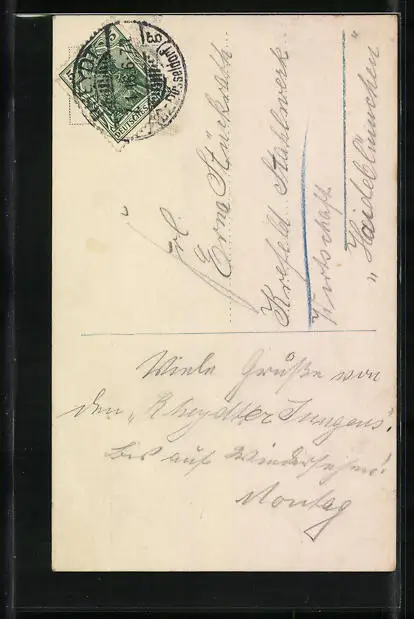 RHEYDT
Düsseldorf
Frl.
Erna Stückrath
Krefeld Stahlwerk
Wirtschaft
„Haideblümchen"
Viele Grüße von
den „Rheydter Jungens".
Bis auf Wiedersehen!
Montag